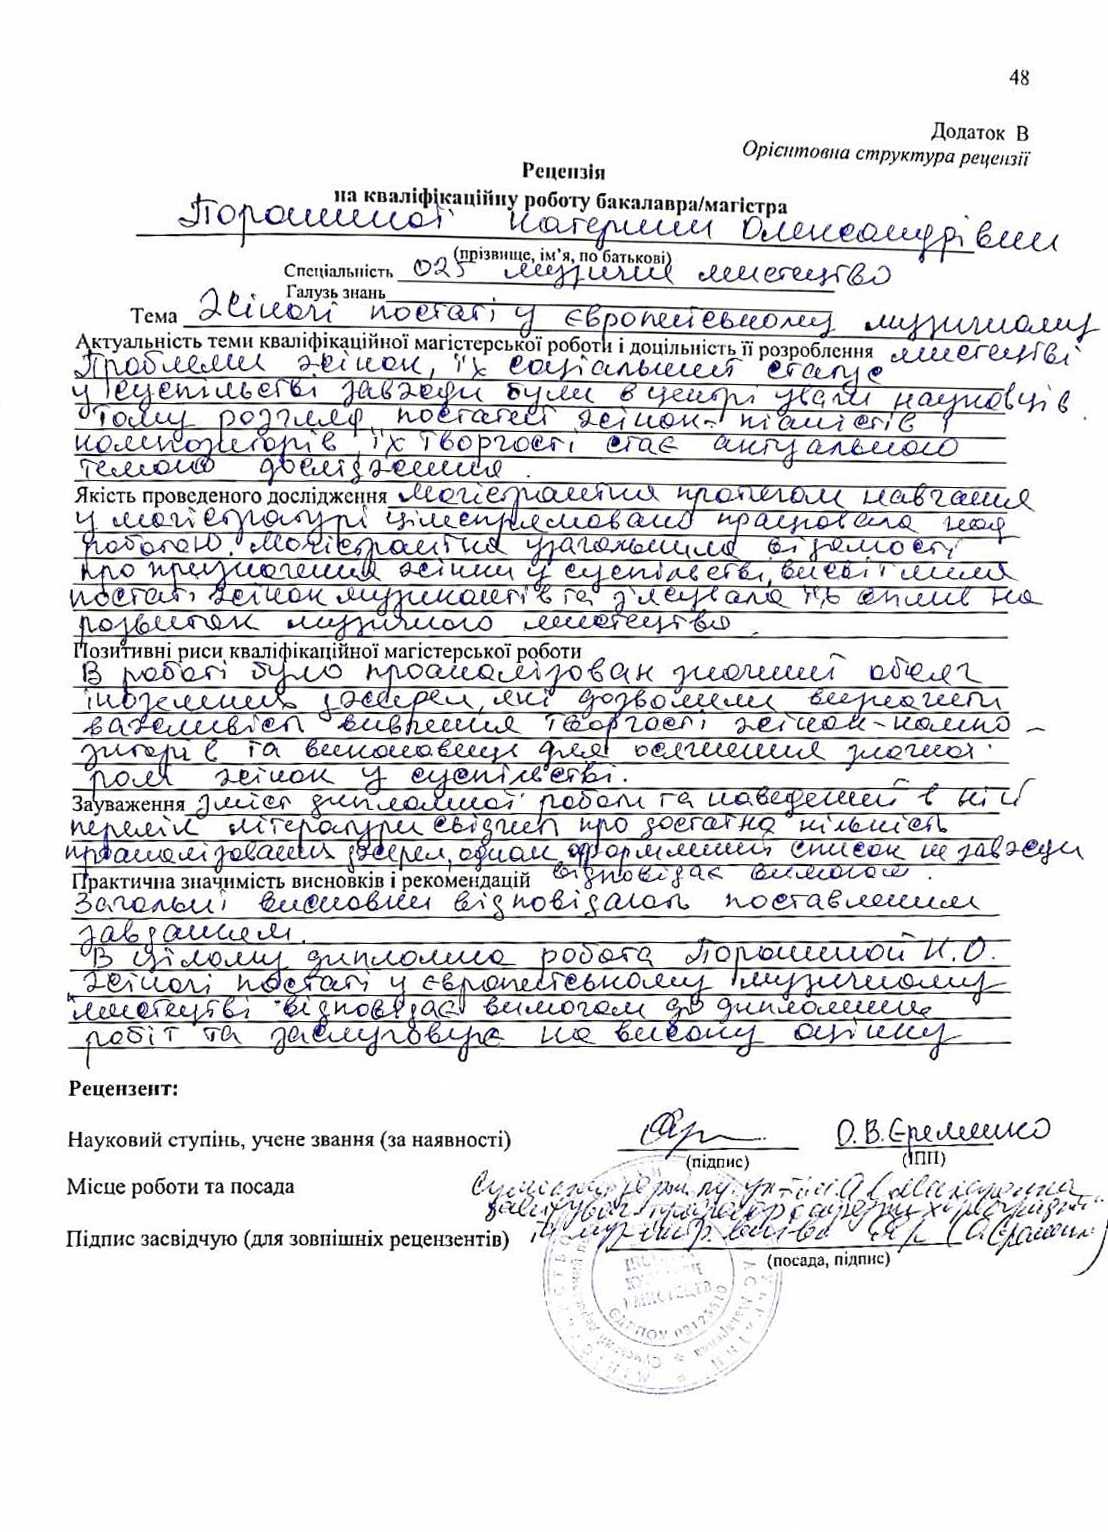 48
Додаток В
Орієнтовна структура рецензії
Рецензія
на кваліфікаційну роботу бакалавра/магістра
Порошиної Катерини Олександрівни
(прізвище, ім’я, по батькові)
Спеціальність 025 музичне мистецтво
Галузь знань
Тема Жіночі постаті у європейському музичному
Актуальність теми кваліфікаційної магістерської роботи і доцільність її розроблення мистецтві
Проблеми жінок, їх соціальний статус
у суспільстві завжди були в центрі уваги науковців.
Тому розгляд постатей жінок-піаністів і
композиторів, їх творчості стає актуальною
темою дослідження.
Якість проведеного дослідження Магістрантка протягом навчання
у магістратурі цілеспрямовано працювала над
роботою. Магістрантка узагальнила відомості
про призначення жінки у суспільстві, висвітлила
постаті жінок музикантів та з'ясувала їх вплив на
розвиток музичного мистецтва.
Позитивні риси кваліфікаційної магістерської роботи
В роботі було проаналізован значний обсяг
іноземних джерел, які дозволили визначити
важливість вивчення творчості жінок-компо-
зиторів та виконавиць для осягнення значної
ролі жінок у суспільстві.
Зауваження Зміст дипломної роботи та наведений в ній
перелік літератури свідчить про достатню кількість
проаналізованих джерел, однак оформлений список не завжди
Практична значимість висновків і рекомендацій відповідає вимогам.
Загальні висновки відповідають поставленим
завданням.
В цілому дипломна робота Порошиной К.О.
Жіночі постаті у європейському музичному
мистецтві" відповідає вимогам до дипломних
робіт та заслуговує на високу оцінку
Рецензент:
Науковий ступінь, учене звання (за наявності) О.В.Єременко
(підпис) (ПІП)
Місце роботи та посада
Підпис засвідчую (для зовнішніх рецензентів)
(посада, підпис)